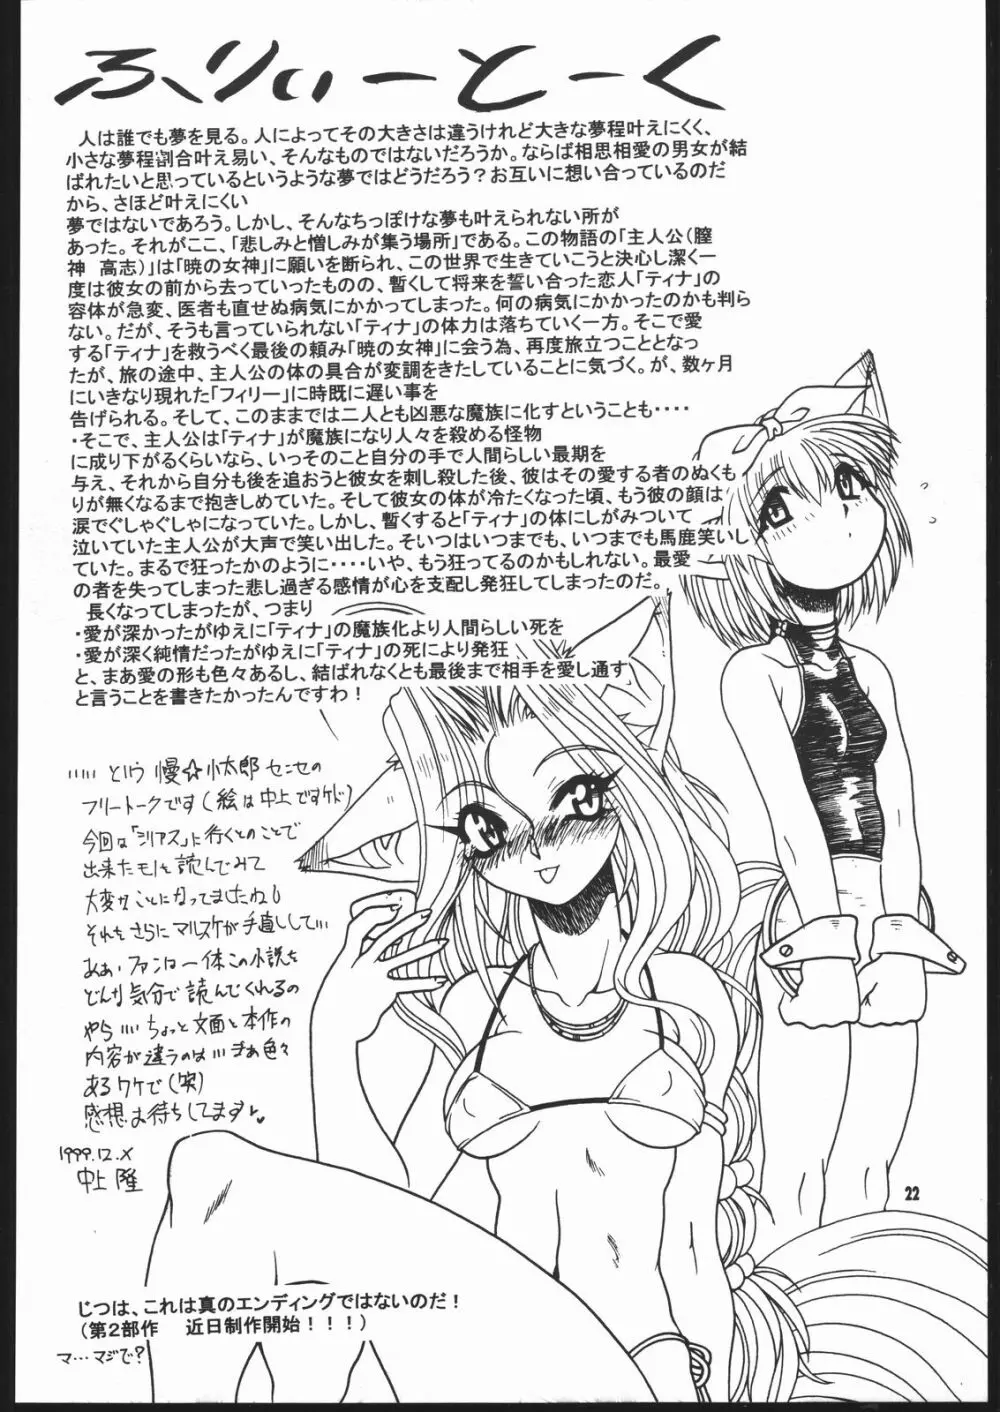 ふりぃーとーく
人は誰でも夢を見る。人によってその大きさは違うけれど大きな夢程叶えにくく、
小さな夢程割合叶え易い、そんなものではないだろうか。ならば相思相愛の男女が結
ばれたいと思っているというような夢ではどうだろう？お互いに想い合っているのだ
から、さほど叶えにくい
夢ではないであろう。しかし、そんなちっぽけな夢も叶えられない所が
あった。それがここ、「悲しみと憎しみが集う場所」である。この物語の「主人公（膣
神　高志）」は「暁の女神」に願いを断られ、この世界で生きていこうと決心し潔く一
度は彼女の前から去っていったものの、暫くして将来を誓い合った恋人「ティナ」の
容体が急変、医者も直せぬ病気にかかってしまった。何の病気にかかったのかも判ら
ない。だが、そうも言っていられない「ティナ」の体力は落ちていく一方。そこで愛
する「ティナ」を救うべく最後の頼み「暁の女神」に会う為、再度旅立つこととなっ
たが、旅の途中、主人公の体の具合が変調をきたしていることに気づく。が、数ヶ月
にいきなり現れた「フィリー」に時既に遅い事を
告げられる。そして、このままでは二人とも凶悪な魔族に化すということも・・・・
・そこで、主人公は「ティナ」が魔族になり人々を殺める怪物
に成り下がるくらいなら、いっそのこと自分の手で人間らしい最期を
与え、それから自分も後を追おうと彼女を刺し殺した後、彼はその愛する者のぬくも
りが無くなるまで抱きしめていた。そして彼女の体が冷たくなった頃、もう彼の顔は
涙でぐしゃぐしゃになっていた。しかし、暫くすると「ティナ」の体にしがみついて
泣いていた主人公が大声で笑い出した。そいつはいつまでも、いつまでも馬鹿笑いし
ていた。まるで狂ったかのように・・・・いや、もう狂ってるのかもしれない。最愛
の者を失ってしまった悲し過ぎる感情が心を支配し発狂してしまったのだ。
長くなってしまったが、つまり
・愛が深かったがゆえに「ティナ」の魔族化より人間らしい死を
・愛が深く純情だったがゆえに「ティナ」の死により発狂
と、まあ愛の形も色々あるし、結ばれなくとも最後まで相手を愛し通す
と言うことを書きたかったんですわ！
……という 慢☆小太郎 センセの
フリートークです（絵は中上ですケド）
今回は「シリアス」に行くとのことで
出来たモノを読んでみて
大変なことになってましたねし
それをさらにマルスケが手直しして…
ああ、ファンは一体この小説を
どんな気分で読んでくれるの
やら…ちょっと文面と本作の
内容が違うのは…まぁ色々
あるワケで（笑）
感想お待ちしてます♥
1999.12.X
中上 隆
22
じつは、これは真のエンディングではないのだ！
（第２部作　近日制作開始！！！）
マ…マジで？